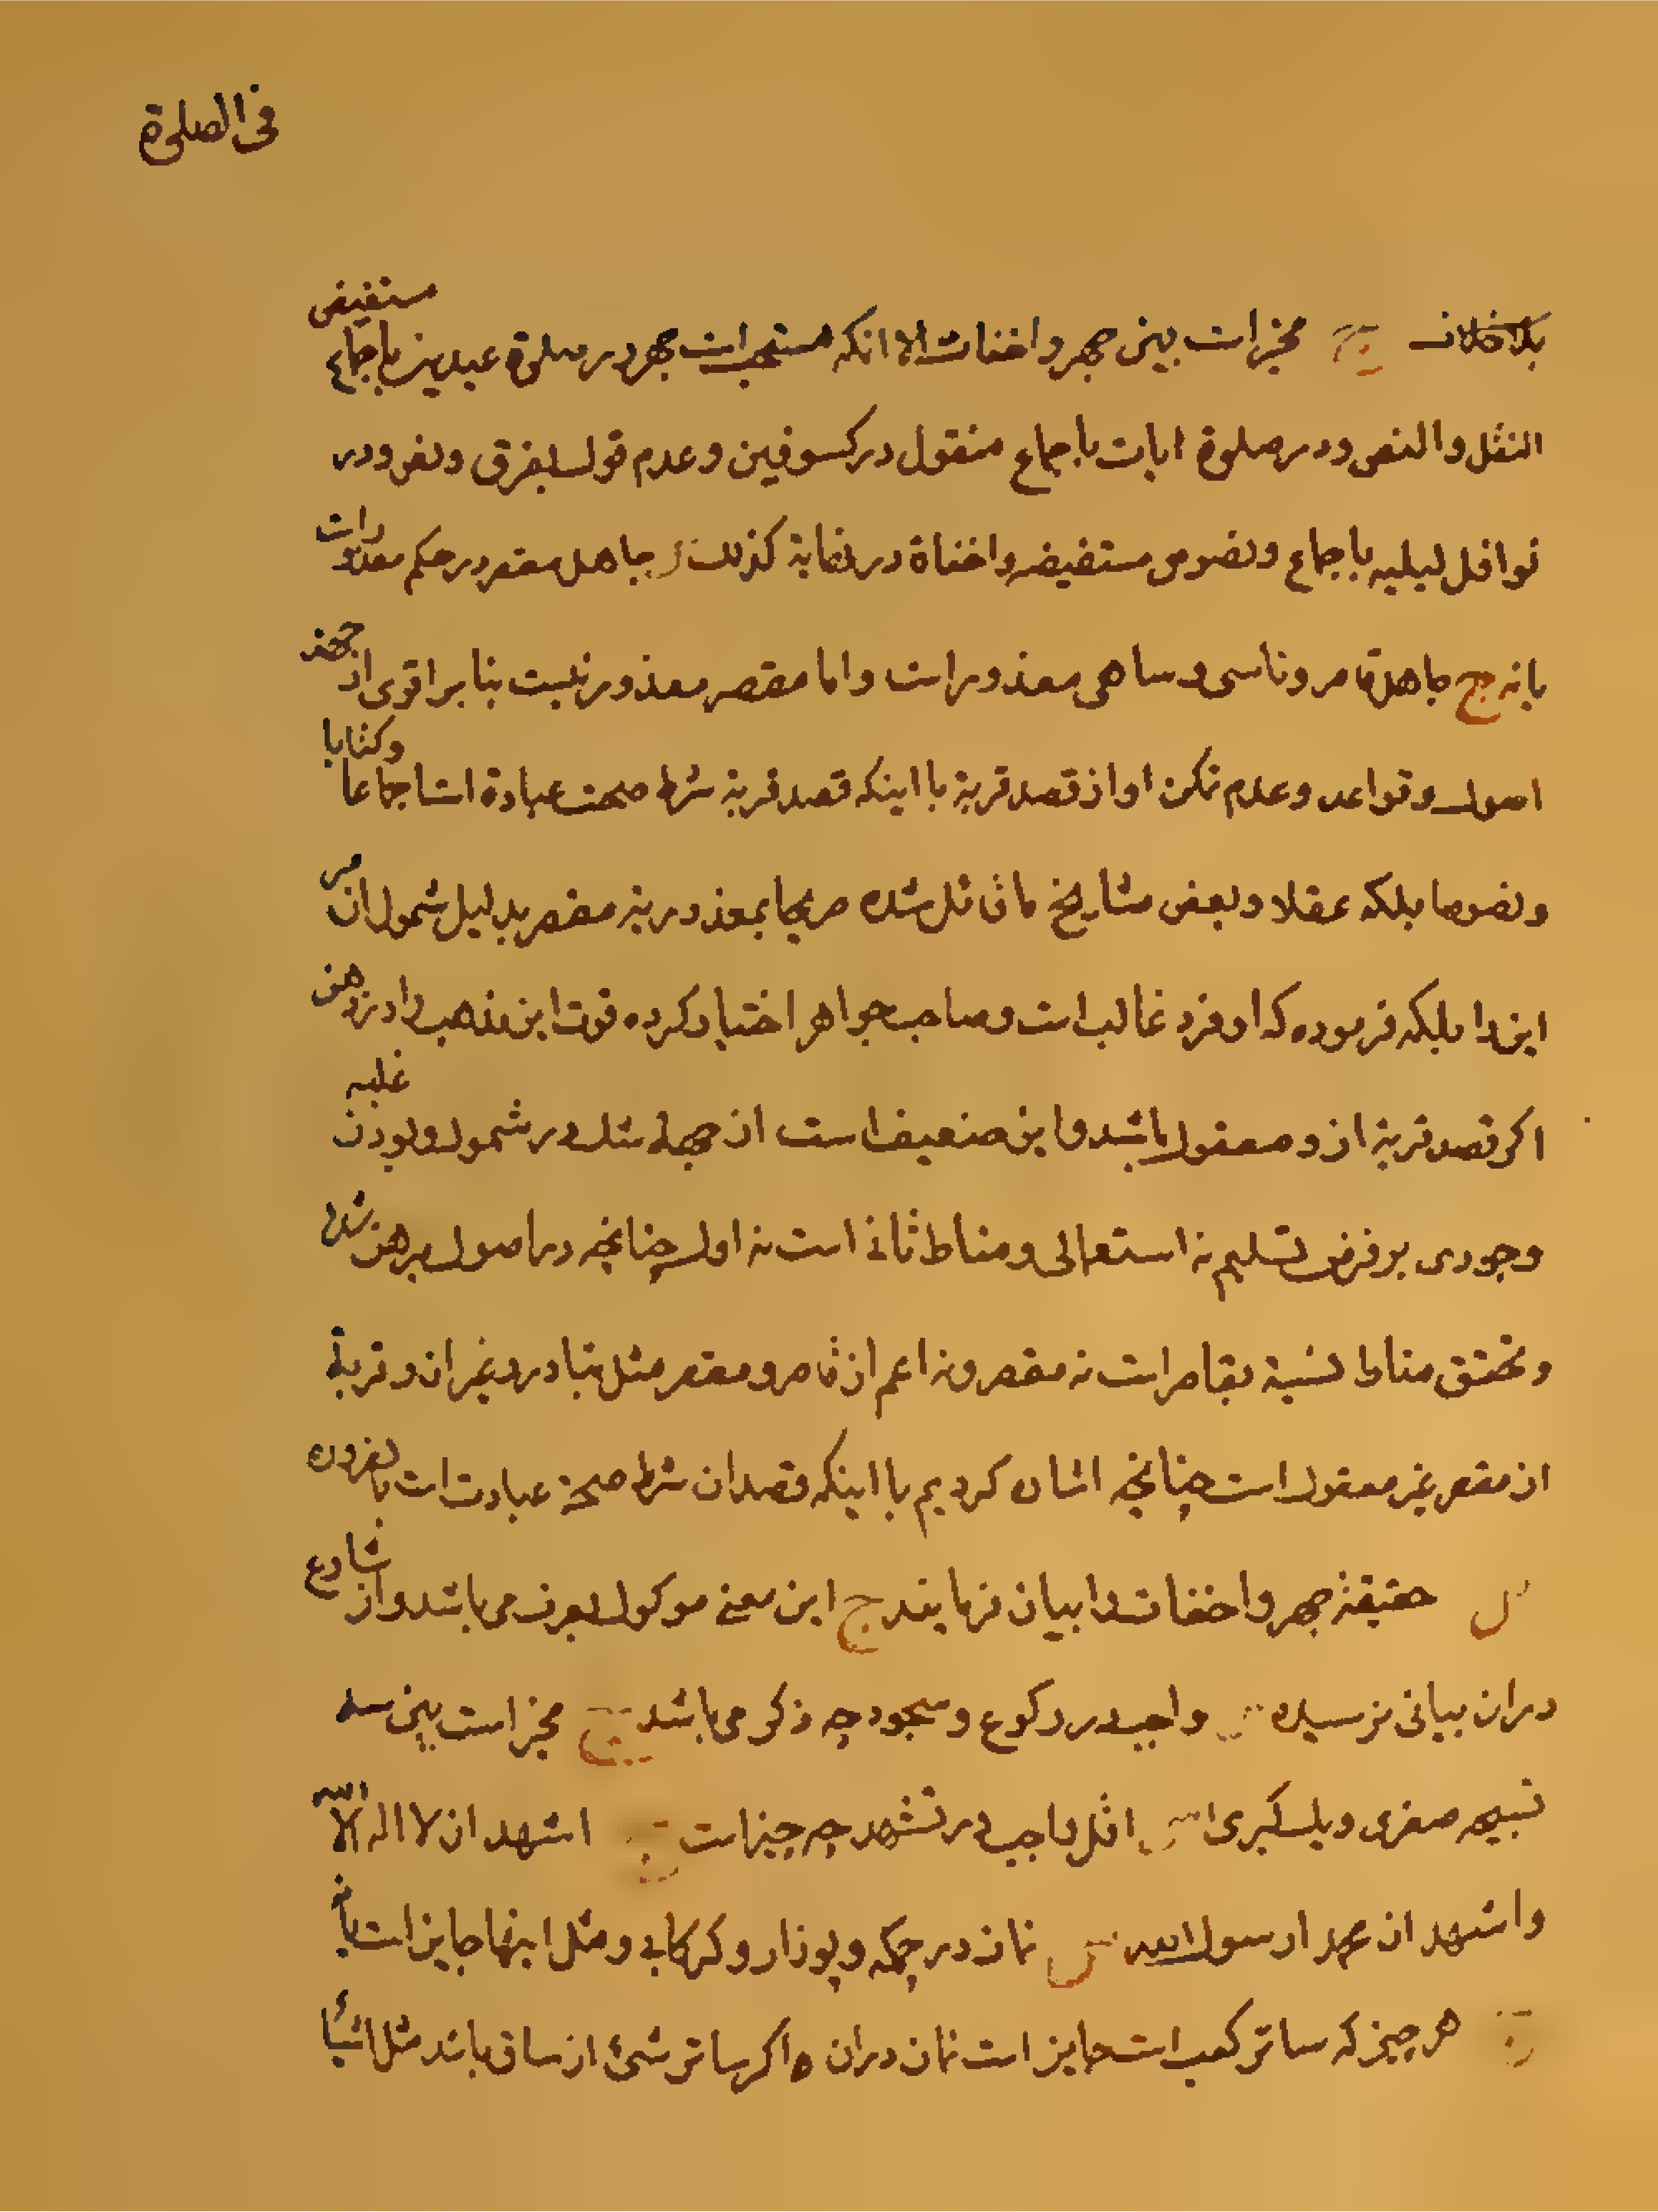 فی الصلوة
بلا خلاف ج مخیر است بین جهر و اخفات الا انکه مستحب است جهر در صلوة عیدین باجماع مستفیض
النقل والنص و در صلوة ایات باجماع منقول در کسوفین و عدم قول بفرق و نص و در
نوافل لیلیه باجماع و نصوص مستفیضه و اخفاة در نهایة کذلک جاهل مقصر در حکم معذور است
یا نه ج جاهل قاصر و ناسی و ساهی معذور است و اما مقصر معذور نیست بنابر اقوی از جهة
اصول و قواعد و عدم تمکن او از قصد قربة با اینکه قصد قربة شرط صحت عبادة است اجماعا و کتابا
و نصوصا بلکه عقلا و بعض مشایخ ما قائل شده صریحا بمعذوریة مقصر بدلیل شمول ان مر
این را بلکه فرموده که او فرد غالب است و صاحب جواهر اختیار کرده قوت این مذهب را در ذهن
اکر قصد قربة از و معقول باشد و این ضعیف است از جهة شک در شمول و بودن غلبه
وجودی بر فرض تسلیم نه استعمالی و مناط ثانی است نه اول چنانچه در اصول مبرهن شده
و تحقق مناط بنسبة بقاصر است نه مقصر و نه اعم از قاصر و مقصر مثل تبادر و غیر ان و قربة
از مقصر غیر معقول است چنانچه اشاره کردیم با اینکه قصد ان شرط صحة عبادت است بالضرورة
س حقیقة جهر و اخفات را بیان فرمایند ج این معنی موکول بعرف می باشد و از شارع
در ان بیانی نرسیده س واجب در رکوع و سجود چه ذکر می باشد ج مخیر است بین سه
تسبیحه صغری و یک کبری س اقل واجب در تشهد چه چیز است ج اشهد ان لا اله الا الله
و اشهد ان محمدا رسول الله س نماز در چکمه و پوزار و کرکابی و مثل اینها جایز است یا نه
ج هر چیز که ساتر کعب است جایز است نماز در ان و اکر ساتر شیئ از ساق باشد مثل اشیاء